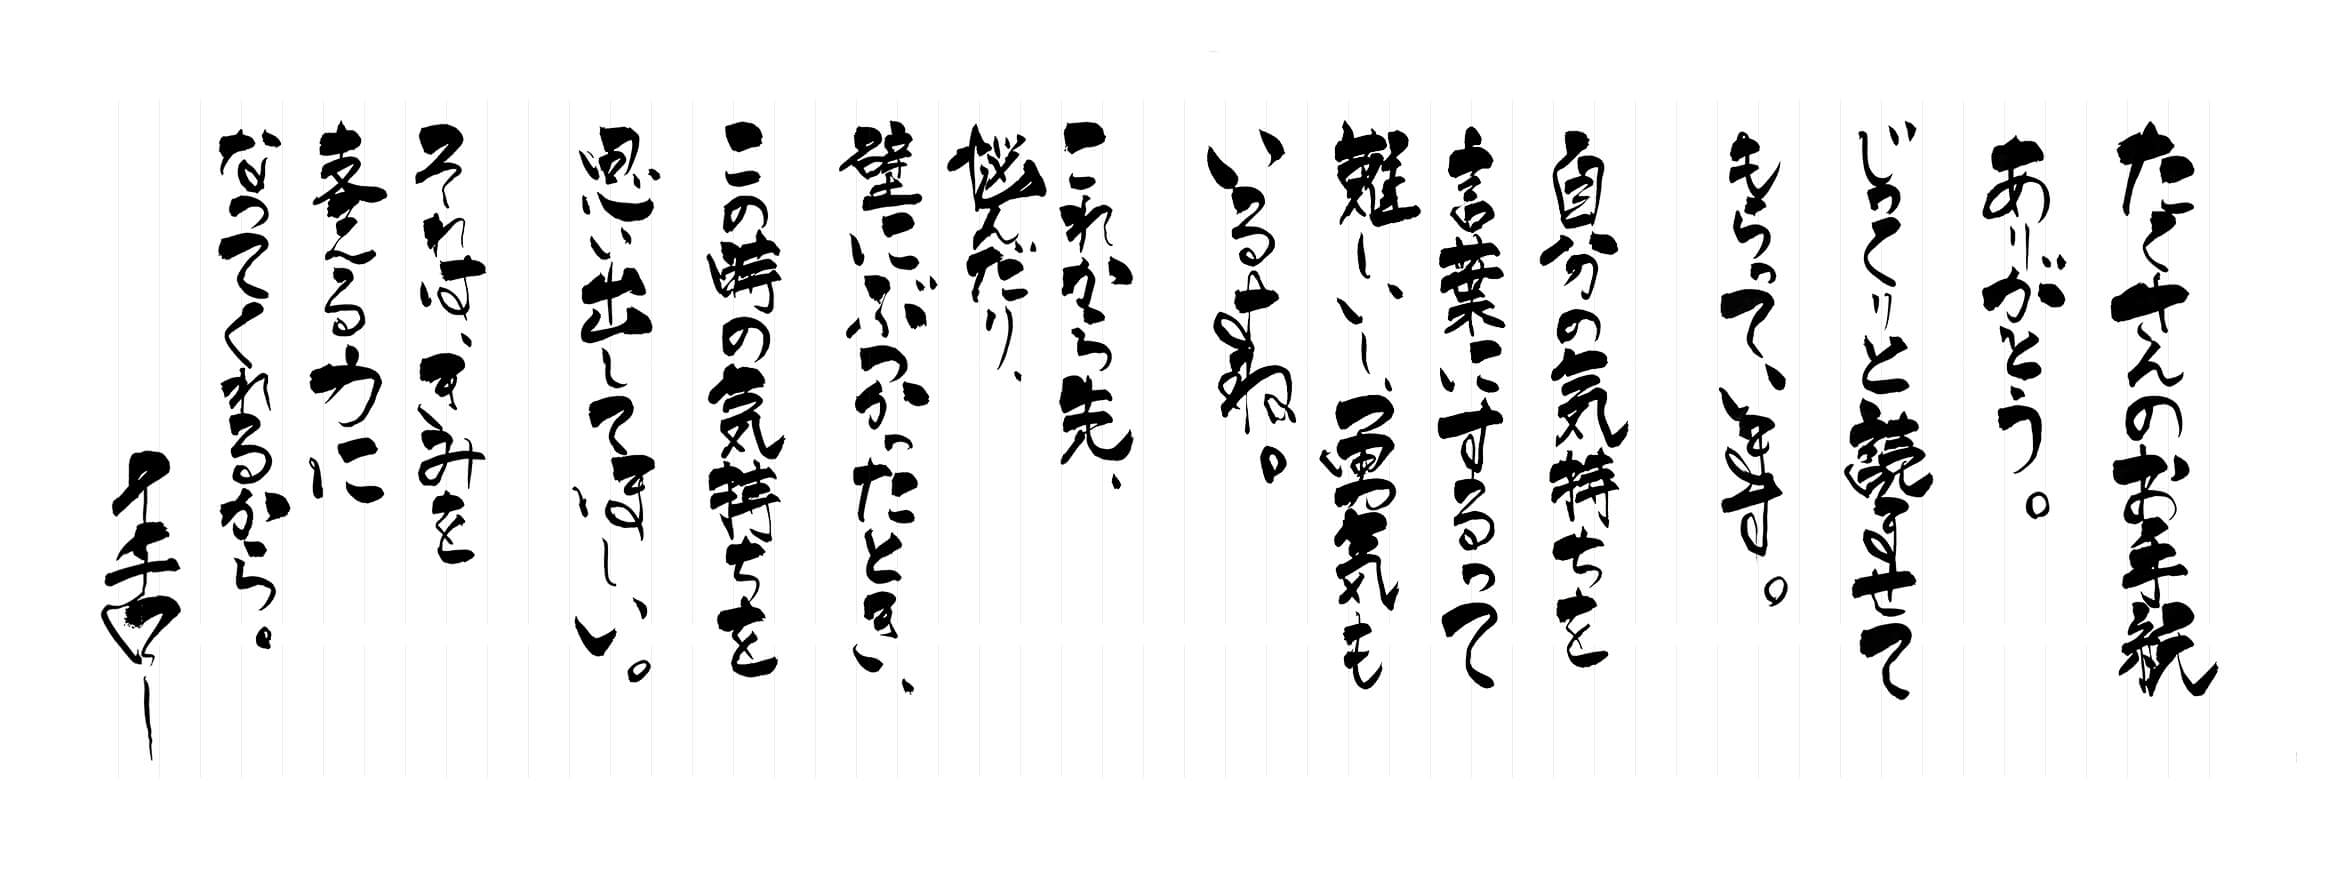 たくさんのお手紙
ありがとう。
じっくりと読ませて
もらって、います。
自分の気持ちを
言葉にするって
難しいし、勇気も
いるよね。
これから先、
悩んだり、
壁にぶつかったとき、
この時の気持ちを
思い出してほしい。
それは、きみを
支える力に
なってくれるから。
イチロー